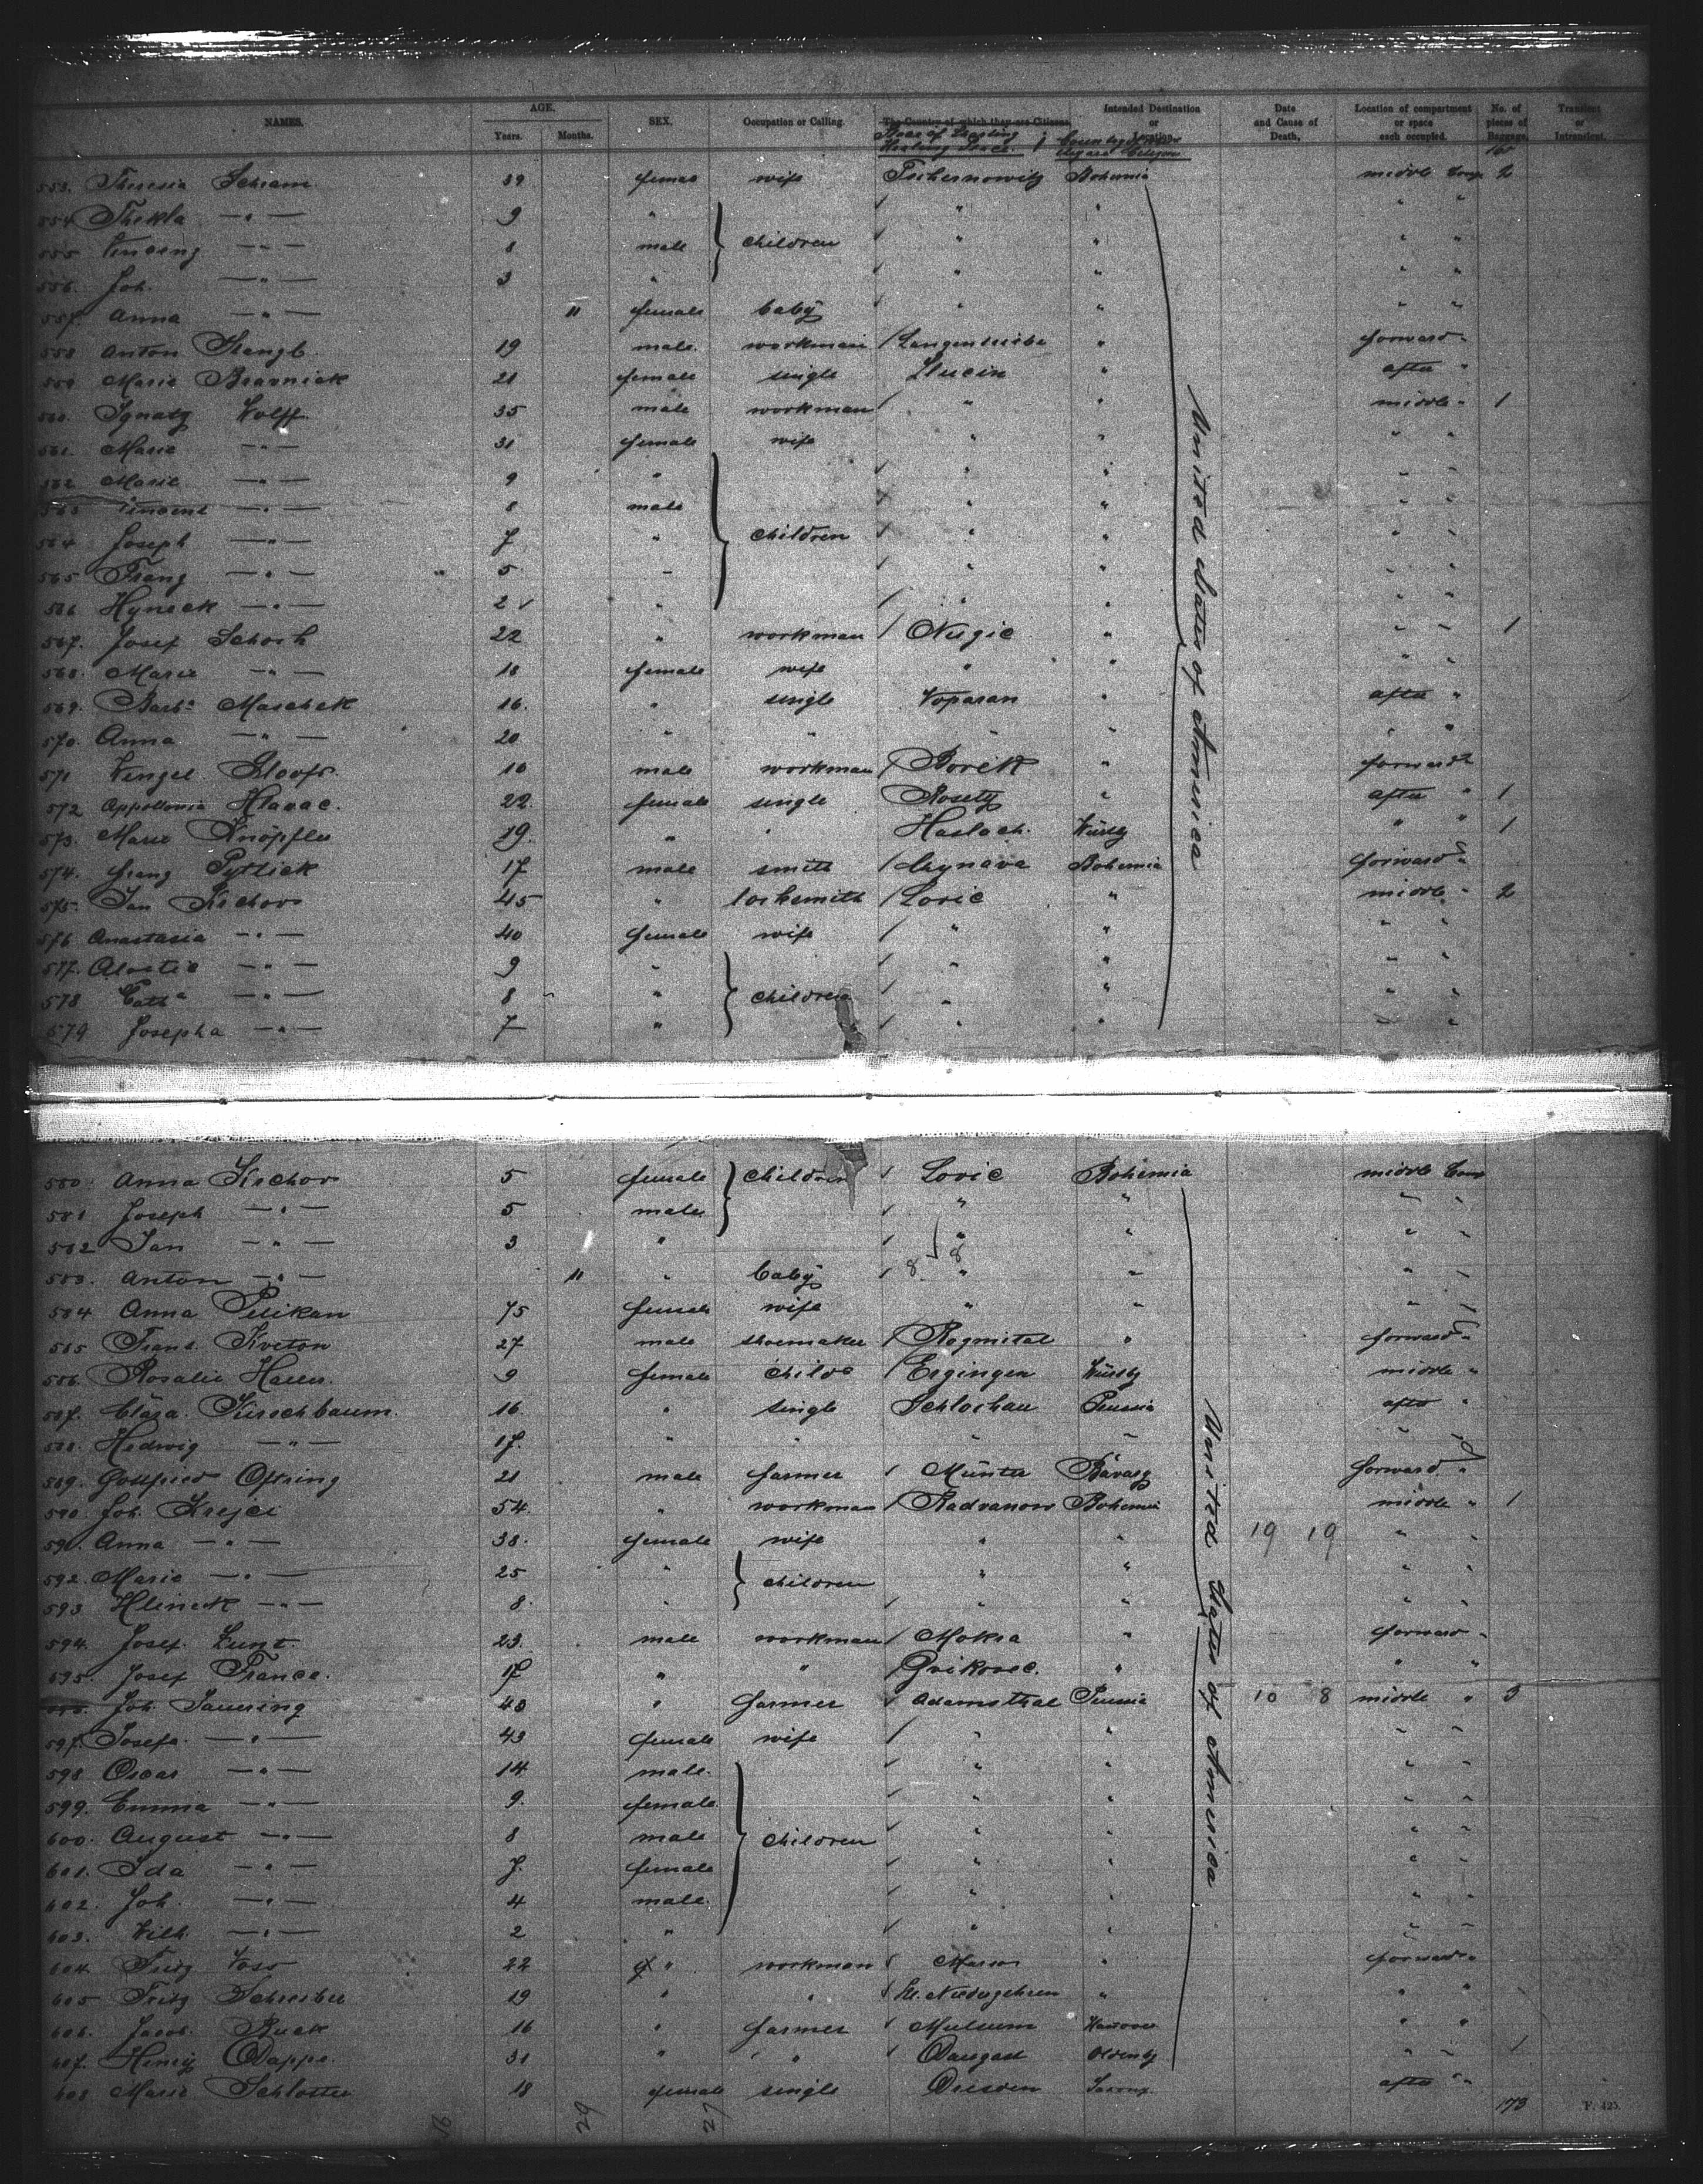 NAMES. AGE. Years. Months. SEX. Occupation or Calling. The Country of which they are Citizens. Intended Destination or Location. Date and Cause of Death, Location of compartment or space each occupied. No. of pieces of Baggage. Transient or Intransient.
553. Theresia Schram 39 female wife Tschernowitz Bohemia middle Comp 2
554 Thekla -"- 9 " " "
555 Vincenz -"- 8 male children " "
556. Joh. -"- 3 " " "
557. Anna -"- 11 female baby " "
558 Anton Stangl 19 male workman " forward "
559 Marie 21 female single " after "
560. Ignatz Wolff 35 male workman " " middle " 1
561. Marie -"- 31 female wife " "
562 Marie -"- 9 " " "
563 Vincent -"- 8 male " "
564 Joseph -"- 7 " children " "
565 Franz -"- 5 " " "
566 Hyneck -"- 2 " " "
567. Josef Schoch 22 " workman Nugic " " " 1
568. Marie -"- 18 female wife " "
569. Barba Maschek 16. " single Voparan " after "
570. Anna -"- 20 " " " "
571 Wenzel male workman Borek " forward "
572 Appollonia Hlavac. 22. female single Rosety " after " 1
573. Marie Knöpfler 19. " " Haslach. Würtbg " " 1
574. Franz Pyttlick 17 male smith Chynava Bohemia forward "
575. Jan Krchov 45 " locksmith Lovic " middle " 2
576 Anastasia -"- 40 female wife " "
577. -"- 9 " " "
578 Catha -"- 8 " children " "
579 Josepha -"- 7 " " "
United States of America
580. Anna Krchov 5 female Children Lovic Bohemia middle Comp
581 Joseph -"- 5 male " "
582 Jan -"- 3 " " "
583. Anton -"- 11 " baby " "
584 Anna Pelikan 75 female wife " "
585 Franz Kveton 27 male shoemaker Rozmital " forward "
586. Rosalie 9 female child Ergingen Würtbg middle "
587. Clara Kirschbaum. 16. " single Schlochau Prussia after "
588. Hedwig -"- 17. " " " "
589. Gottfried 21 male farmer Münster forward "
590. Joh. Krejci 54. " workman Radvanov Bohemia middle " 1
591. Anna -"- 38. female wife " " 19 19
592. Marie -"- 25 " children " "
593 Hlineck -"- 8. " " "
594. Josef Zunt 23. male workman Mokra " forward "
595. Josef France. 17 " " "
596. Joh. Sauering 43 " farmer Adamsthal Prussia 10 8 middle " 3
597. Josefa -"- 43 female wife " "
598 Oscar -"- 14 male. " "
599. Emma -"- 9. female. " "
600. August -"- 8 male children " "
601. Ida -"- 7. female " "
602. Joh. -"- 4 male. " "
603. Wilh. -"- 2 " " "
604. Voss 22 " workman " forward "
605 Fritz Schreiber 19 " " "
606. Jacob Buck 16 " farmer Mulsum Hanover " "
607. 31 " " Dangast Oldenbg " " 1
608 Marie 18 female single Dresden Saxony after "
United States of America
16 29 27 173
F. 425.